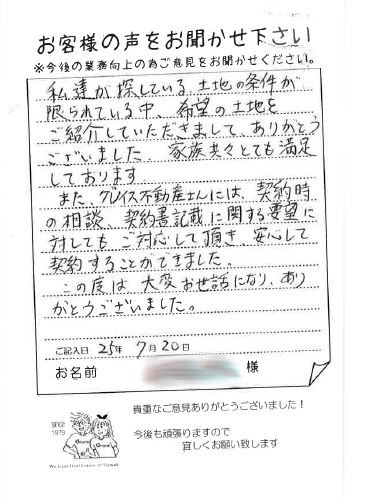 お客様の声をお聞かせ下さい
※今後の業務向上の為ご意見をお聞かせください。
私達が探している土地の条件が
限られている中、希望の土地を
ご紹介していただきまして、ありがとう
ございました。家族共々とても満足
しております
また、グレイス不動産さんには、契約時
の相談、契約書記載に関する要望に
対しても、ご対応して頂き、安心して
契約することができました。
この度は、大変お世話になり、あり
がとうございました。
ご記入日 25年 7月20日
お名前 様
貴重なご意見ありがとうございました！
今後も頑張りますので
宜しくお願い致します
SINCE
1979